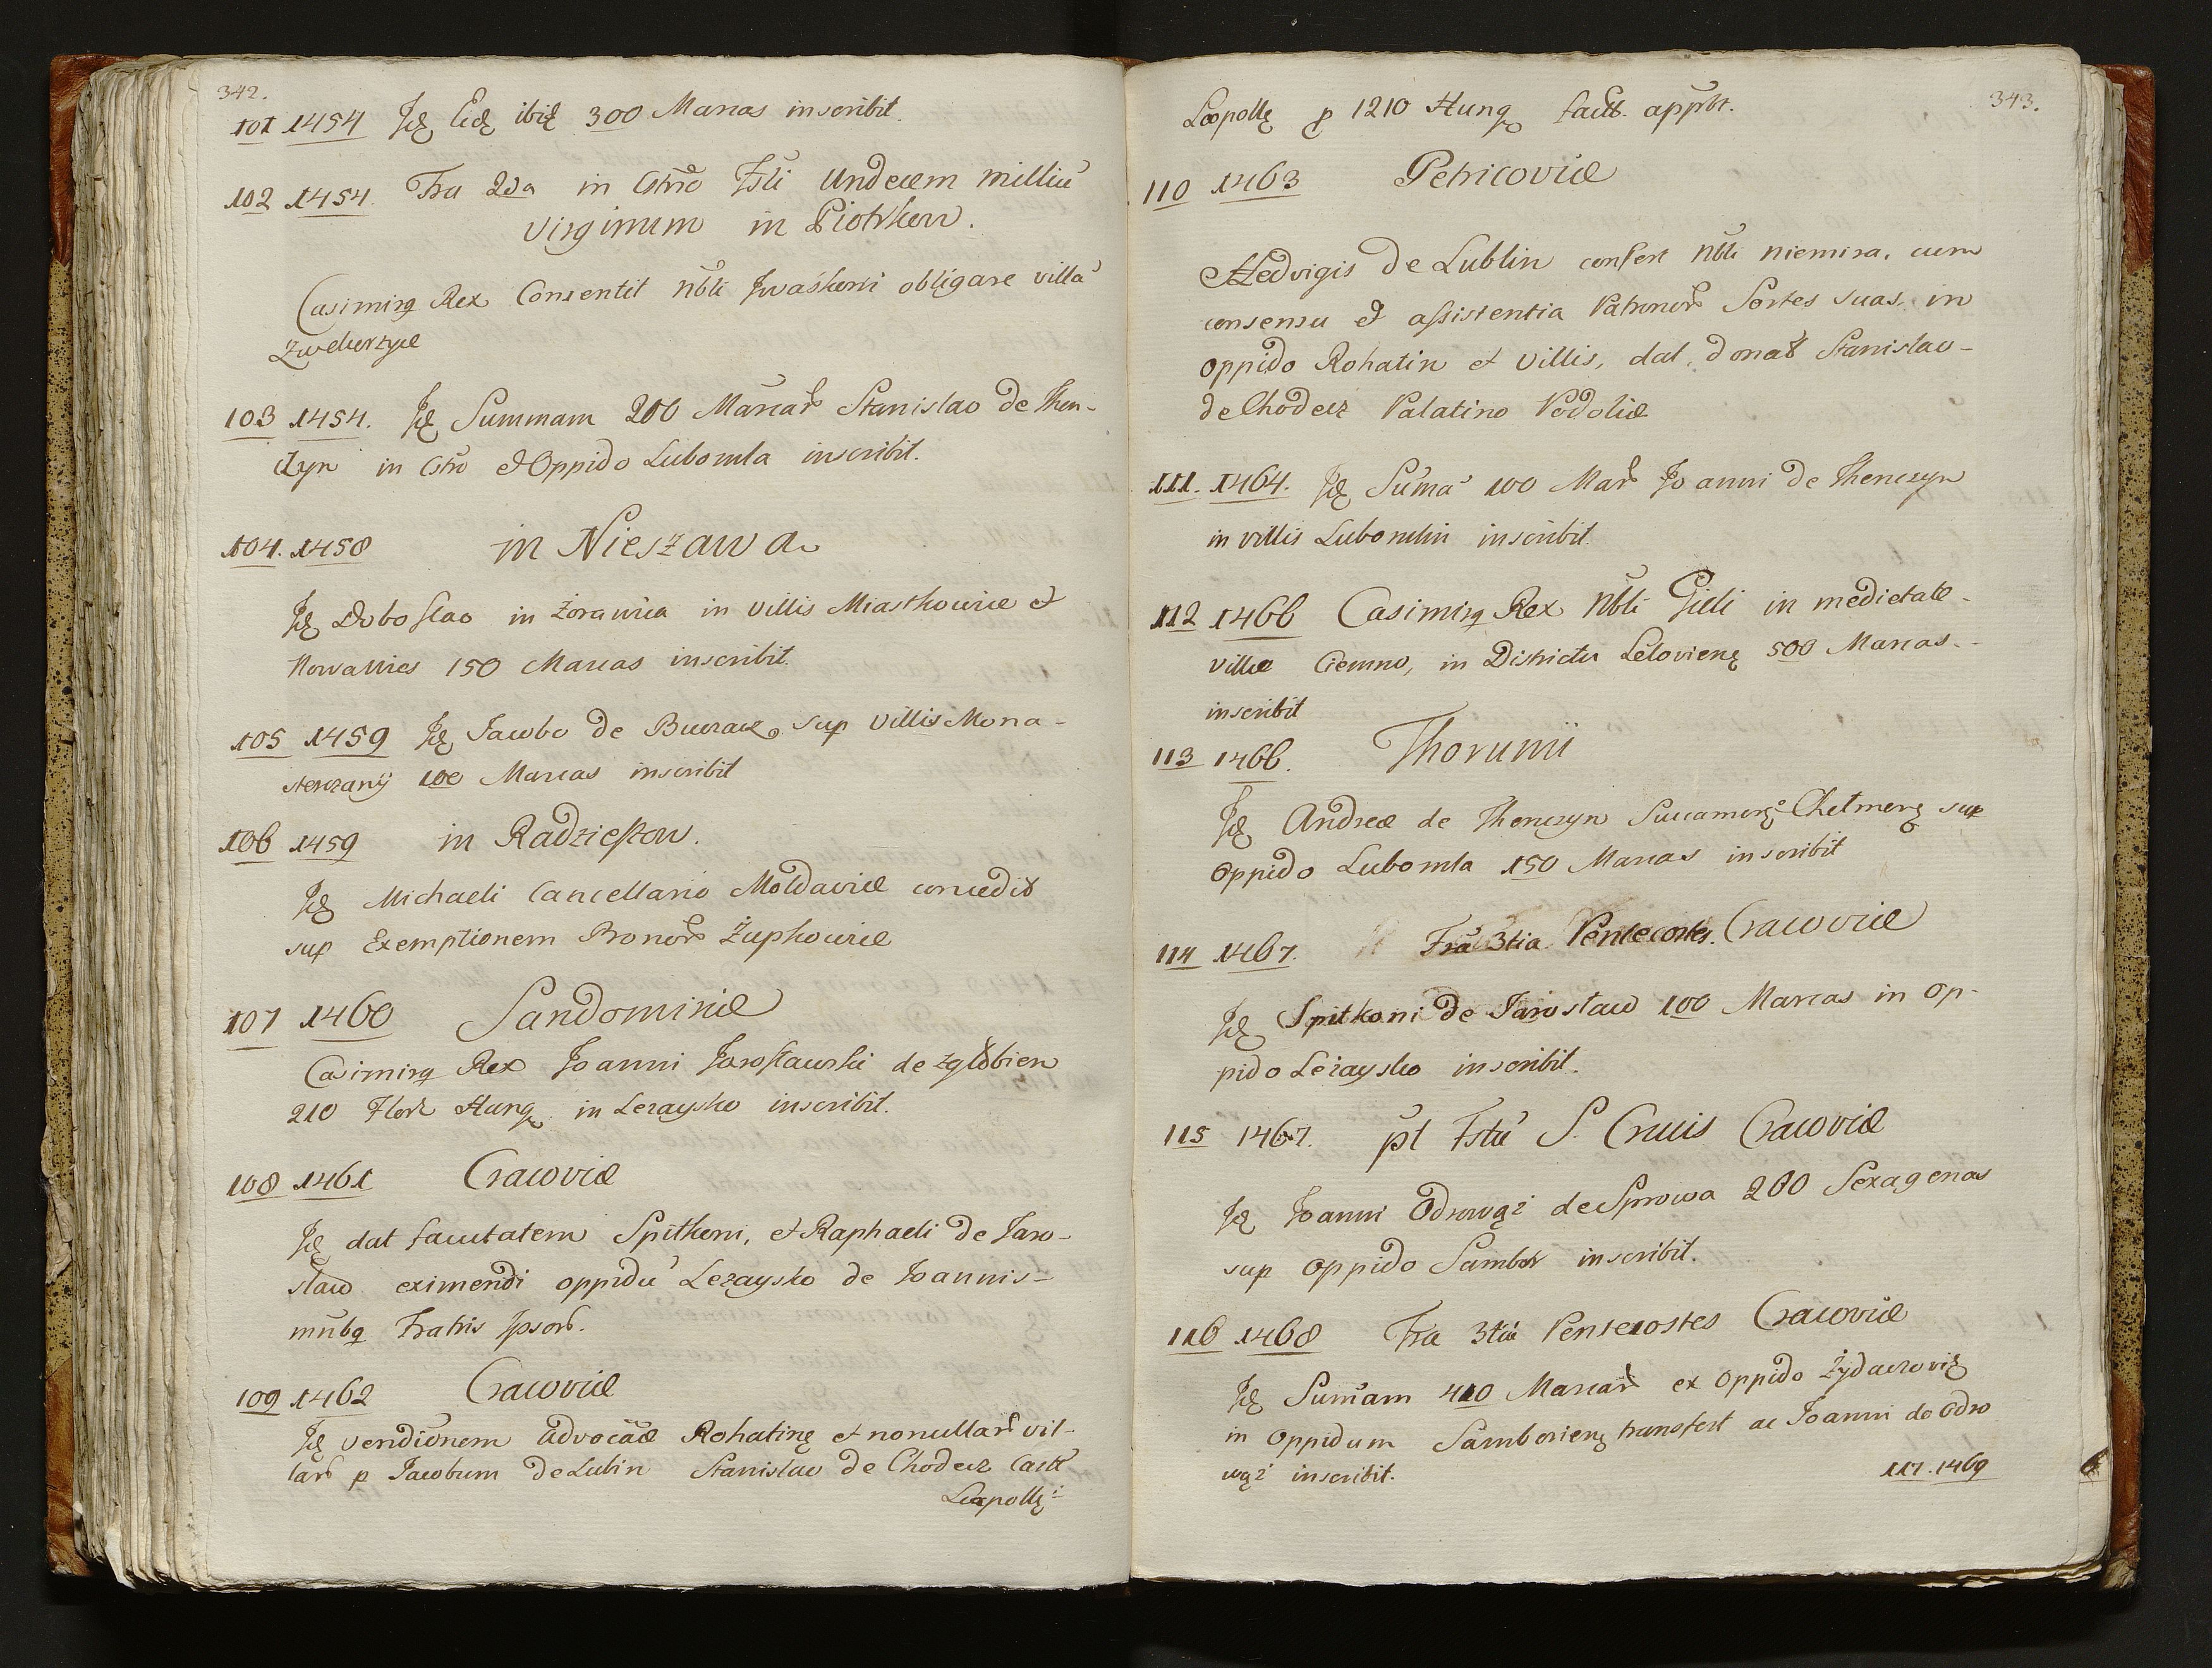 342.
101 1454 Id̨ Eid̨ ibid̨ 300 Marcas inscribit.
102 1454. Fra 2da in Cstrō Fsti Undecem milliū
Virginum in Piotrkow.
Casimirꝗ Rex Consentit Nbli Iwaśkowi obligare villā
Zwehorzyce
103 1454. Id̨ Summam 200 Marcar̃ Stanislao de Then-
czyn in Cstrō et Oppido Lubomla inscribit.
104. 1458 in Nieszawa
Id̨ Doboslao in Żorawica in villis Miasthowice et
Nowawies 150 Marcas inscribit.
105 1459 Id̨ Jacobo de Buczacz sup villis Mona-
sterzanÿ 100 Marcas inscribit
106 1459 in Radzieszow.
Id̨ Michaeli Cancellario Moldaviæ concedit
sup Exemptionem Bronor̃ Zuphowice
107 1460 Sandomiriæ
Casimirꝗ Rex Joanni Jarosławski de Zgłobien
210 Flor̃ Hung. in Lezaysko inscribit.
108 1461 Cracoviæ
Id̨ dat facultatem Spitkoni, et Raphaeli de Jaro-
slaw eximendi oppidū Lezaysko de Joannis
mñbꝗ Fratris Ipsor̃.
109 1462 Cracoviæ
Id̨ vendiōnem Advocāæ Rohatinȩ et nonullar̃ vil-
lar̃ p Jacobum de Lubin Stanislao de Chodecz Castt
Leopollȩ
343.
Leopollȩ p 1210 Hung factt. appbt.
110 1463 Petricoviæ
Hedvigis de Lublin consert Nbli Niemira, cum
consensu et assistentia Patronor̃ Sortes suas in
oppido Rohatin et villis, dat donat Stanislao
de Chodecz Palatino Podoliæ
111. 1464. Id̨ Sum̄ā 100 Mar̃ Joanni de Thenczyn
in villis Lubomlin inscribit.
112 1466 Casimirꝗ Rex Nbli Gieli in medietate
villæ Ciemno, in Districtu Lelovienȩ 500 Marcas
inscribit
113 1466. Thorunii
Id̨ Andreæ de Thenczyn Succamerȩ Chelmenȩ sup
Oppido Lubomla 150 Marcas inscribit
114 1467. Fra 3tia Pentecostes. Cracoviæ
Id̨ Spitkoni de Jarosław 100 Marcas in op-
pido Leżaysko inscribit.
115 1467. pt Fstū S. Crucis Cracoviæ
Id̨ Joanni Odrowąż de Sprowa 200 Sexagenas
sup oppido Sambor inscribit.
116 1468 Fra 3tia Pentecostes Cracoviæ
Id̨ Sum̄am 410 Marcar̃ ex oppido Żydaczoviȩ
in oppidum Samborienȩ transfert ac Joanni de Odro
wąż inscribit.
117. 1469